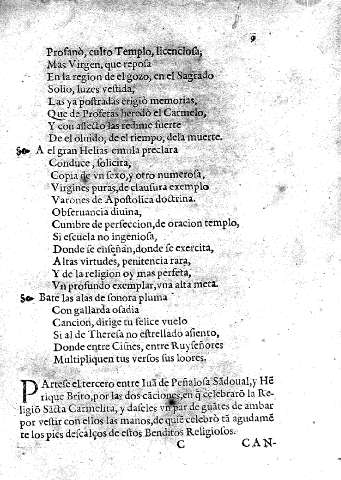 9
Profanò, culto Templo, licenciosa,
Mas Virgen, que reposa
En la region de el gozo, en el Sagrado
Solio, luzes vestida,
Las ya postradas erigiò memorias,
Que de Profetas heredò el Carmelo,
Y con afecto las redime fuerte
De el olvido, de el tiempo, dela muerte.
A el gran Helias emula preclara
Conduce, solicita,
Copia de vn sexo, y otro numerosa,
Virgines puras, de clausura exemplo
Varones de Apostolica doctrina.
Obseruancia diuina,
Cumbre de perfeccion, de oracion templo,
Si escuela no ingeniosa,
Donde se enseñan, donde se exercita,
Altas virtudes, penitencia rara,
Y de la religion oy mas perfeta,
Vn profundo exemplar, vna alta meta.
Bate las alas de sonora pluma
Con gallarda osadia
Cancion, dirige tu felice vuelo
Si al de Theresa no estrellado asiento,
Donde entre Cisnes, entre Ruyseñores
Multipliquen tus versos sus loores.
PArtese el tercero entre Iuã de Peñalosa Sãdoual, y Hẽ
rique Brito, por las dos cãciones, en q̃ celebrarõ la Re
ligiõ Sãcta Carmelita, y daseles vn par de guãtes de ambar
por vestir con ellos las manos, de quiẽ celebrò tã agudamẽ
te los pies descalços de estos Benditos Religiosos.
C CAN-